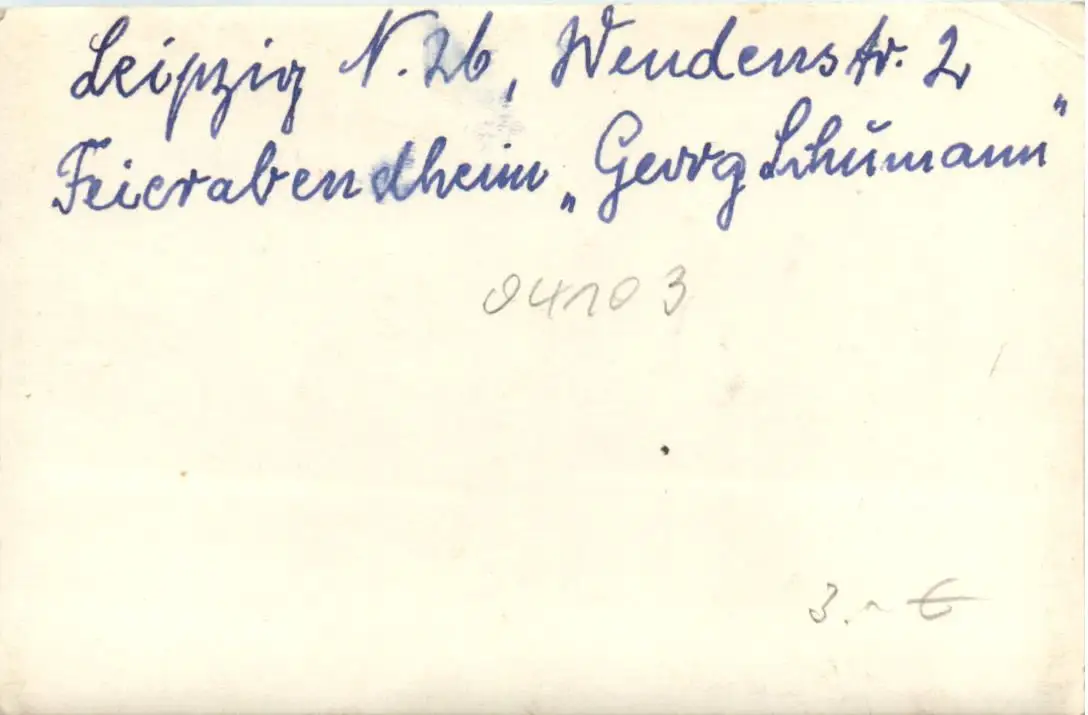 Leipzig N. 26, Wendenstr. 2
Feierabendheim „Georg Schumann"
04103
3.- €